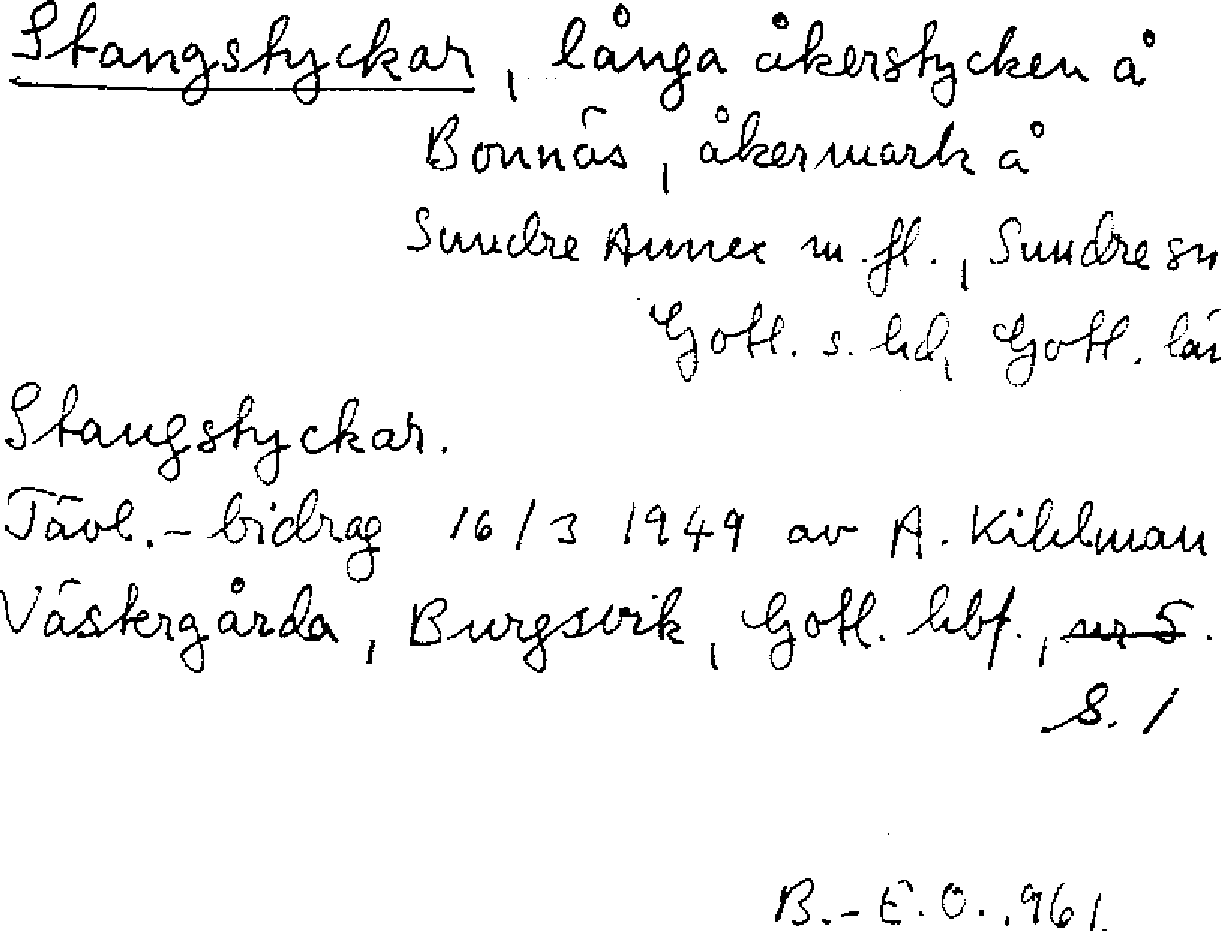 Stangstyckar, långa åkerstycken å
Bonnäs, åkermark å
Sundre Annex m.fl., Sundre sn
Gotl. s. hd, Gotl. län
Stangstyckar.
Tävl.-bidrag 16/3 1949 av A. Kihlman
Västergårda, Burgsvik, Gotl. hbf., nr 5.
S. 1
B.-E.O., 961.